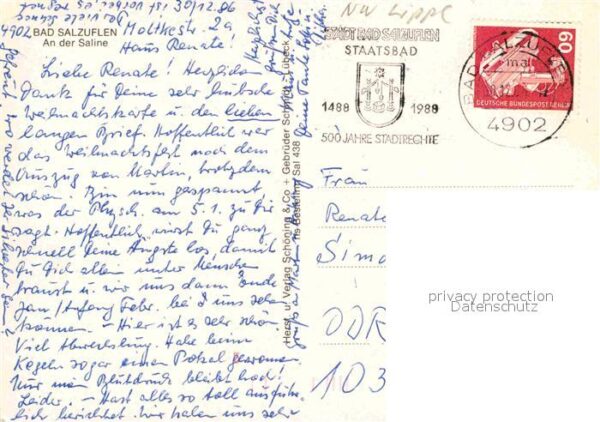 BAD SALZUFLEN
An der Saline
4902
30/12.86
Moltkestr. 2a
Haus Renate!
Liebe Renate! Herzlichen
Dank für Deine sehr hübsche
Weihnachtskarte u. den lieben
langen Brief. Hoffentlich war
das Weihnachtsfest nach dem
Umzug von Martin, trotzdem
schön. Bin nun gespannt,
was der Physch. am 5.1. zu Dir
sagt. Hoffentlich wirst Du ganz
schnell Deine Ängste los, damit
Du Dich allein unter Menschen
traust u. wir uns dann Ende
Jan/Anfang Febr. bei uns sehen
können. – Hier ist es sehr schön
Viel Abwechslung. Habe beim
Kegeln sogar einen Pokal gewonnen.
Nur mein Blutdruck bleibt hoch!
Leider. – Hast alles so toll ausführ-
lich berichtet. Wir haben uns sehr
Herst. u. Verlag Schöning & Co + Gebrüder Schmidt, Lübeck
Bestellnr. Sal 438
NW Lippe
STADT BAD SALZUFLEN
STAATSBAD
1488 1988
500 JAHRE STADTRECHTE
BAD SALZUFLEN
4902
60
DEUTSCHE BUNDESPOST BERLIN
Frau
Renate
Simo
DDR
103
privacy protection
Datenschutz